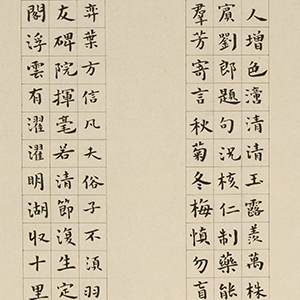 人增色漙清清玉露羨萬株
賓劉郎題句況核仁制藥能
羣芳寄言秋菊冬梅慎勿盲
弈葉方信凡夫俗子不須羽
友碑院揮毫若清節復生定
閣浮雲有濯濯明湖収十里